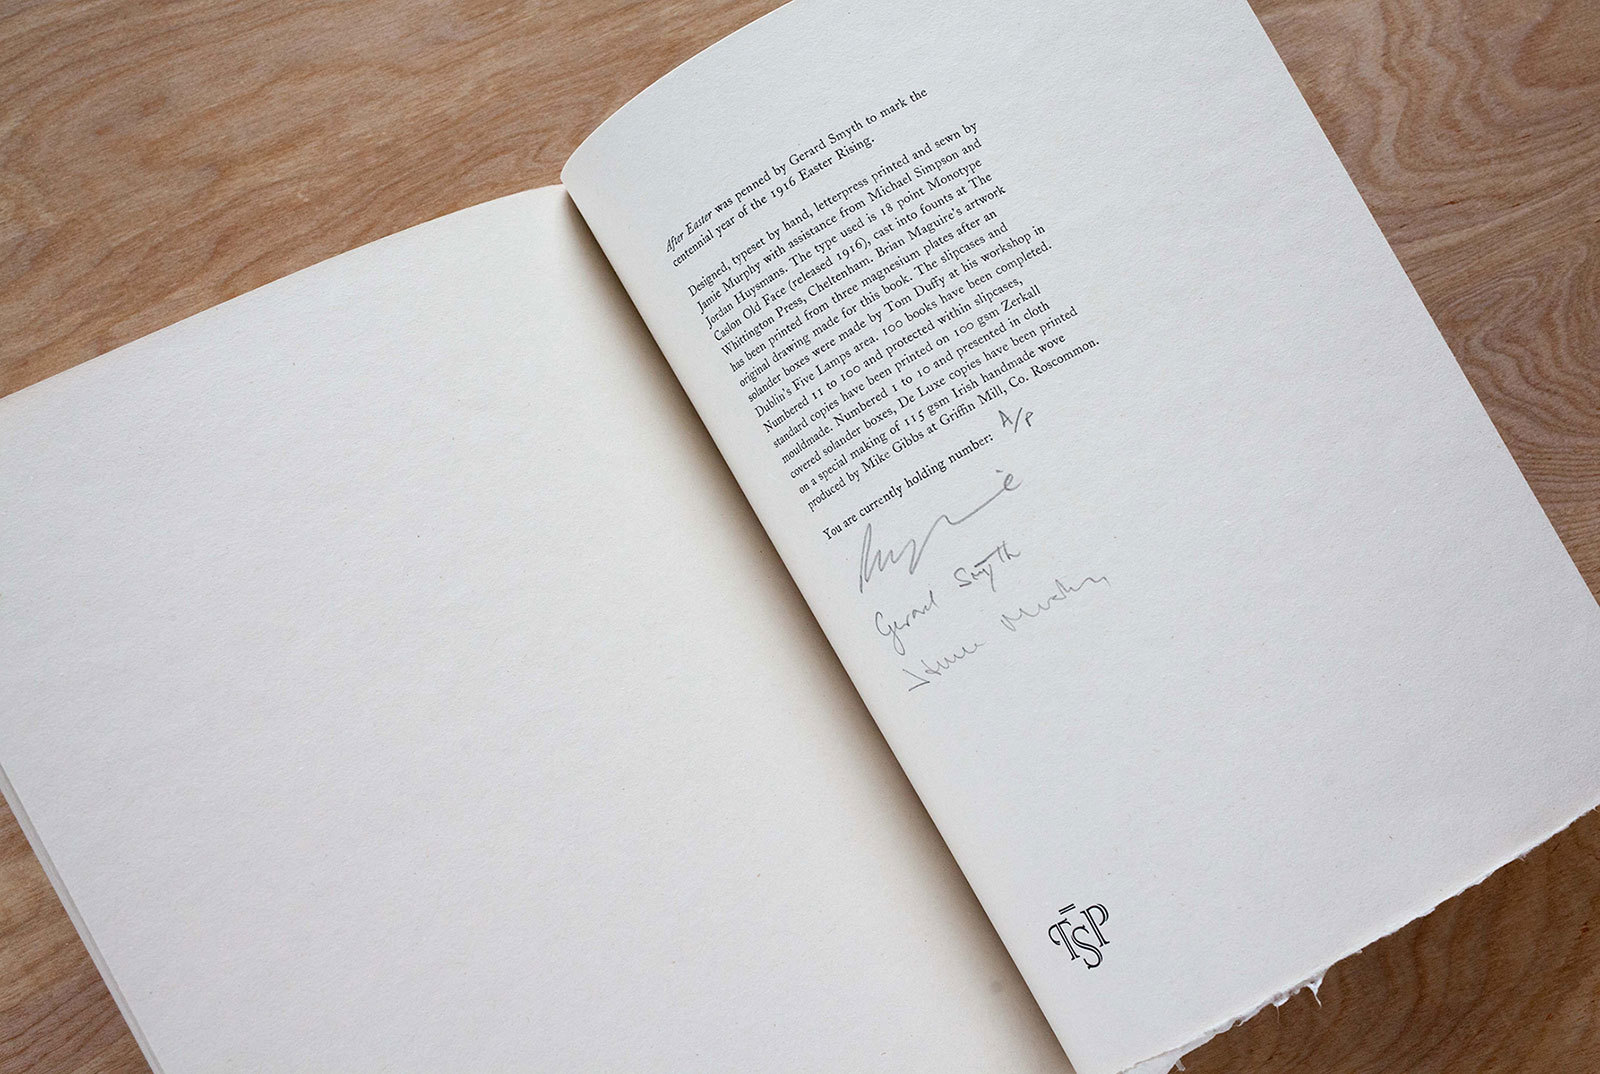 After Easter was penned by Gerard Smyth to mark the
centennial year of the 1916 Easter Rising.
Designed, typeset by hand, letterpress printed and sewn by
Jamie Murphy with assistance from Michael Simpson and
Jordan Huysmans. The type used is 18 point Monotype
Caslon Old Face (released 1916), cast into founts at The
Whittington Press, Cheltenham. Brian Maguire's artwork
has been printed from three magnesium plates after an
original drawing made for this book. The slipcases and
solander boxes were made by Tom Duffy at his workshop in
Dublin's Five Lamps area. 100 books have been completed.
Numbered 11 to 100 and protected within slipcases,
standard copies have been printed on 100 gsm Zerkall
mouldmade. Numbered 1 to 10 and presented in cloth
covered solander boxes, De Luxe copies have been printed
on a special making of 115 gsm Irish handmade wove
produced by Mike Gibbs at Griffin Mill, Co. Roscommon.
You are currently holding number: A/P
Gerard Smyth
TSP